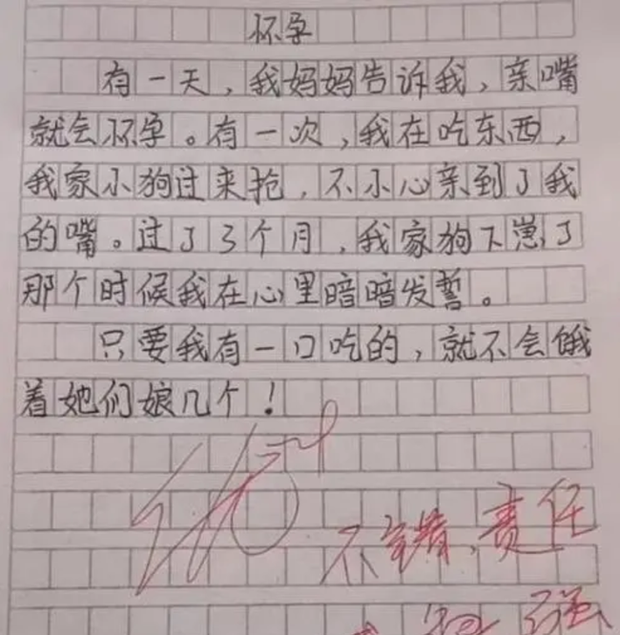 怀孕
有一天，我妈妈告诉我，亲嘴
就会怀孕。有一次，我在吃东西，
我家小狗过来抢，不小心亲到了我
的嘴。过了3个月，我家狗下崽了
那个时候我在心里暗暗发誓。
只要我有一口吃的，就不会饿
着她们娘几个！
优
不错，责任
强